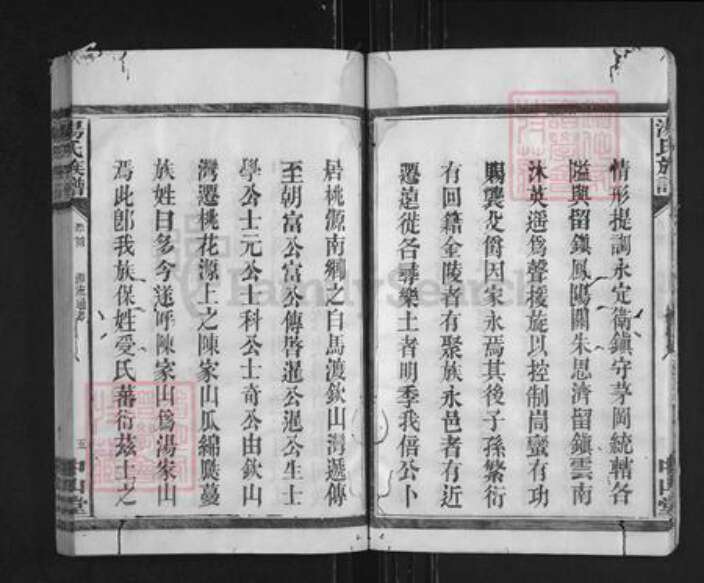 湯氏族譜
情形提調永定衛鎮守茅岡統轄各
隘與留鎮鳳陽關朱恩濟留鎮雲南
沐英遥爲聲援旋以控制峝蠻有功
賜襲父爵因家永焉其後子孫繁衍
有回籍金陵者有聚族永邑者有近
遷遠徙各尋樂土者明季我偣公卜
中山堂
居桃源南鄉之白馬渡欽山灣遞傳
至朝富公富公傳啓暹公暹公生士
學公士元公士科公士奇公由欽山
灣遷桃花源上之陳家山瓜綿瓞蔓
族姓日多今遂呼陳家山爲湯家山
焉此卽我族保姓受氏蕃衍茲土之
湯氏族譜
卷首
五
中山堂
FamilySearch